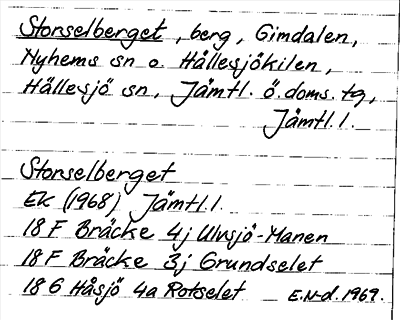 Storselberget, berg, Gimdalen,
Nyhems sn o. Hållesjökilen,
Hällesjö sn, Jämtl. ö. doms. tg,
Jämtl. l.
Storselberget
EK (1968) Jämtl. l.
18 F Bräcke 4j Ulvsjö-Manen
18 F Bräcke 3j Grundselet
18 G Håsjö 4a Rotselet E.N-d. 1969.